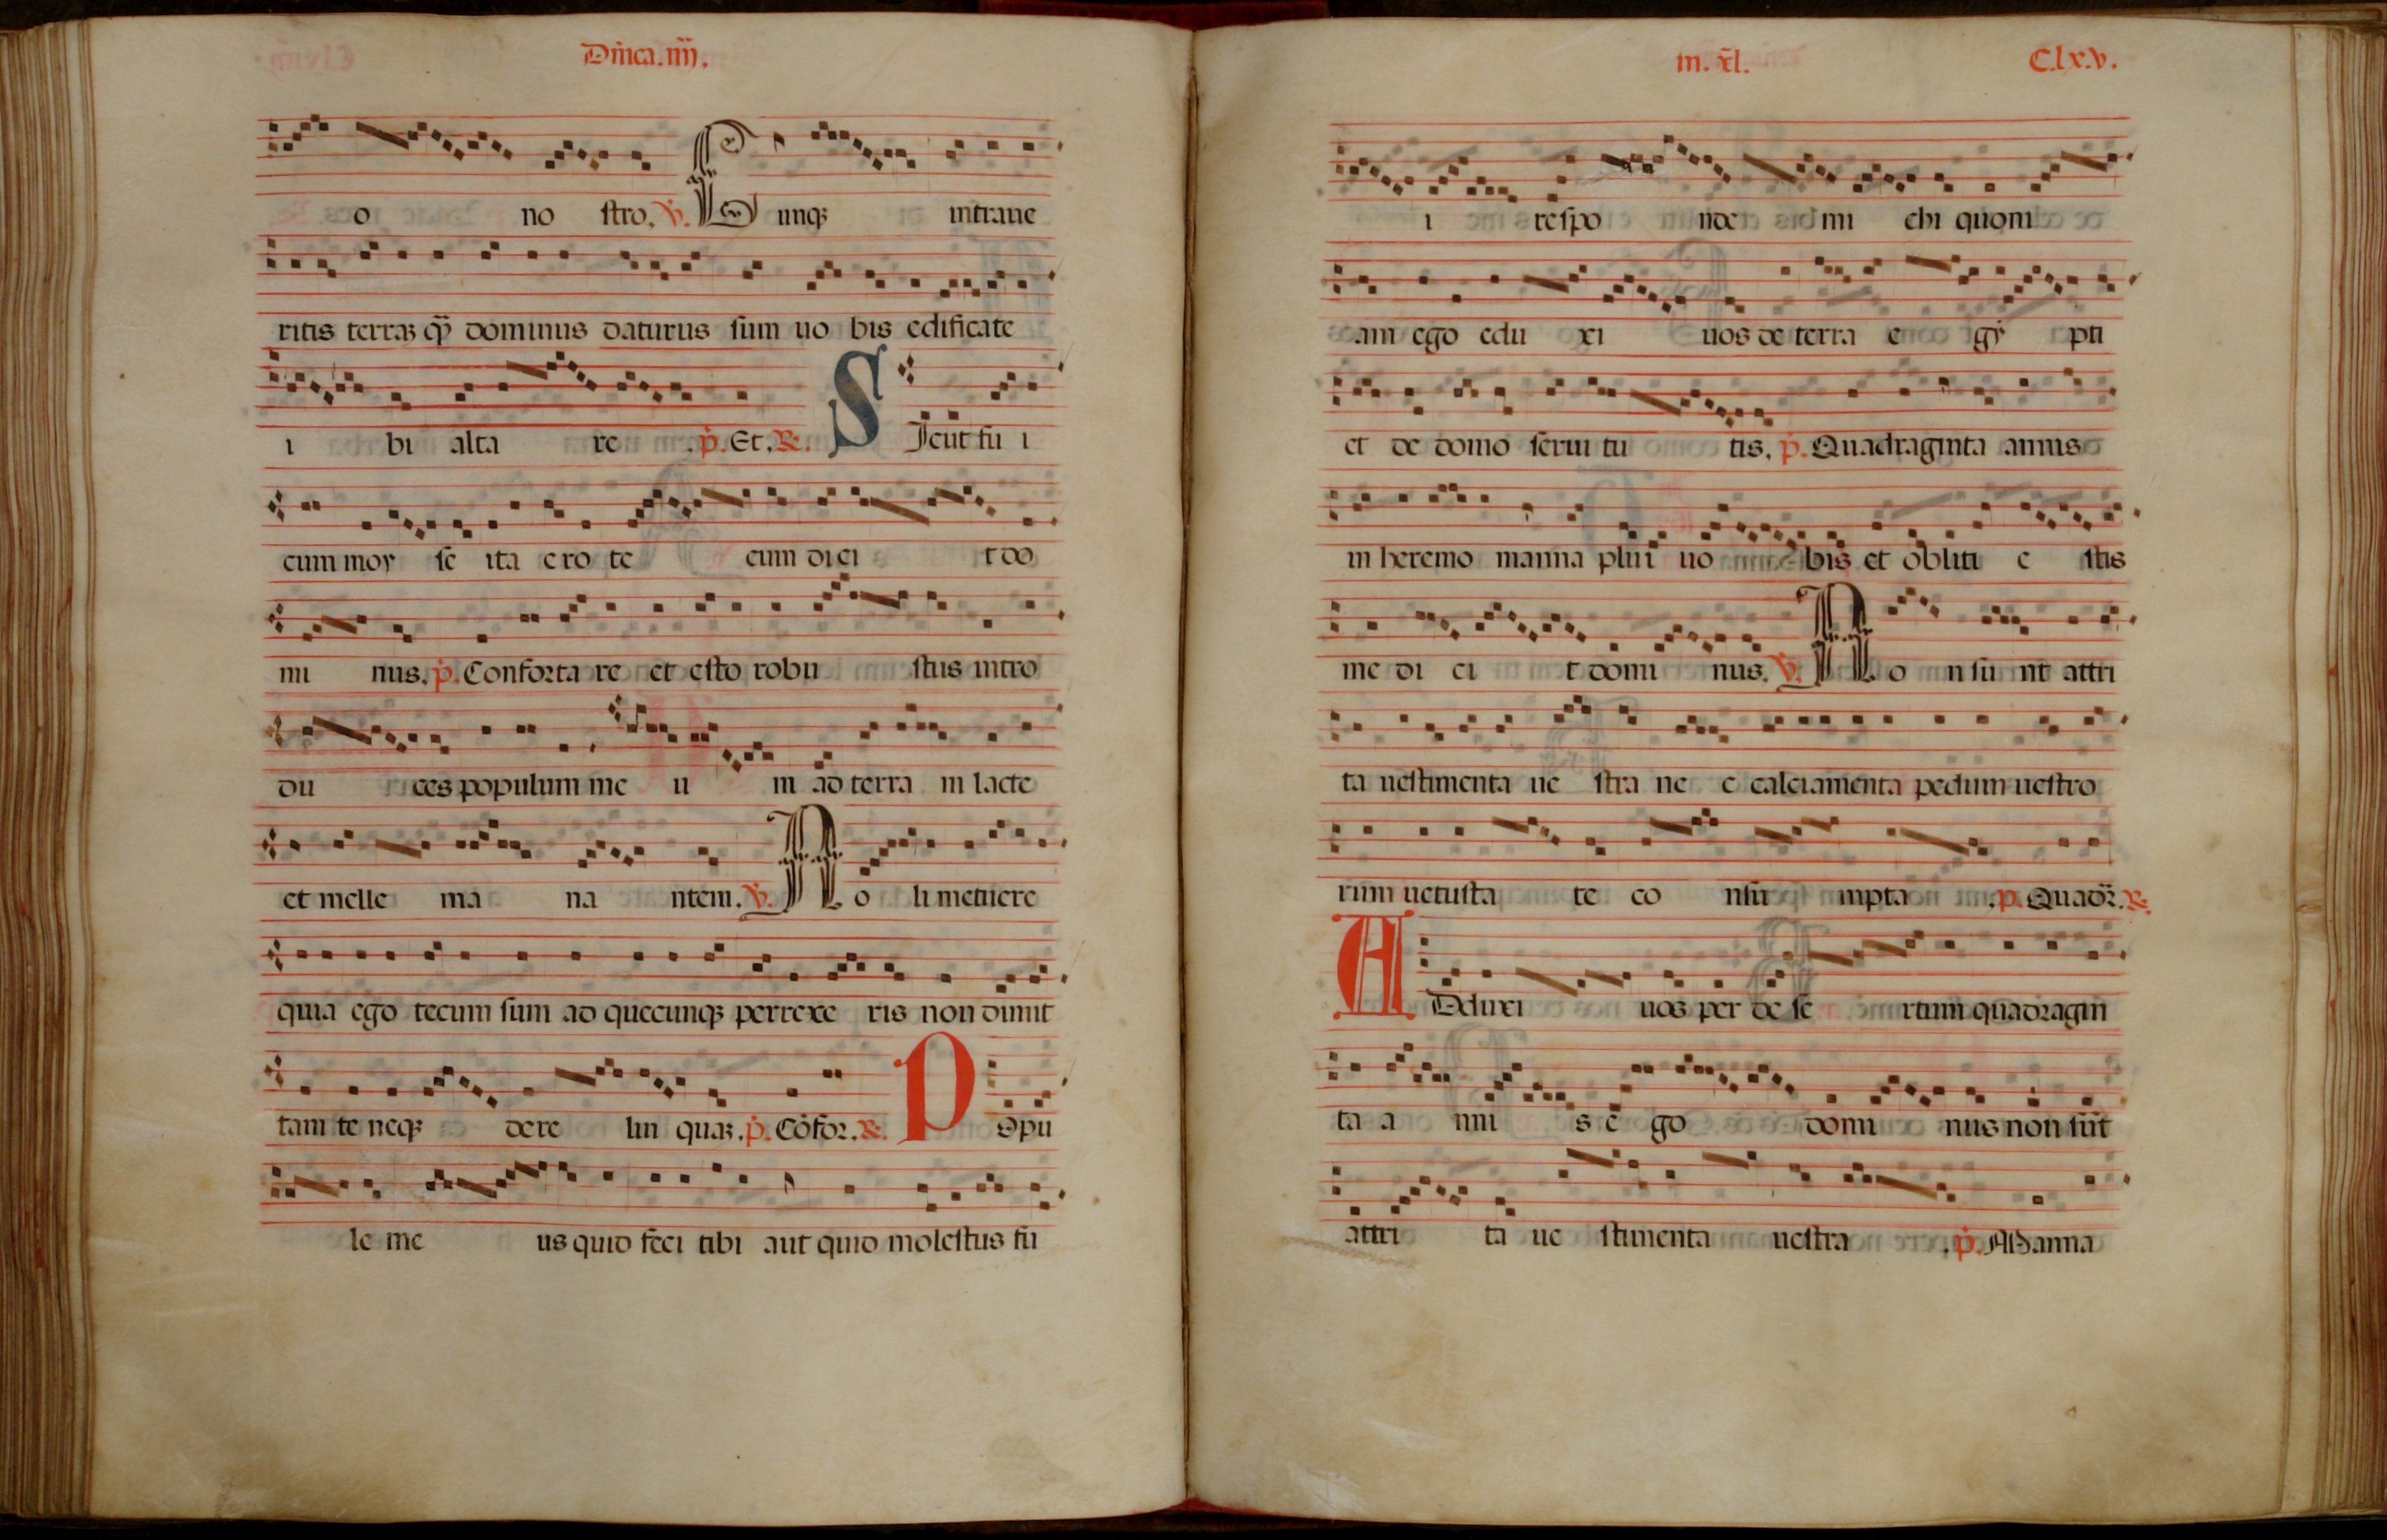 Dñica.iiij.
o no stro. ℣. Cunqꝫ intraue
ritis terraꝫ q̃ dominus daturus sum uo bis edificate
i bi alta re .p̃. Et. ℟. SIcut fu i
cum moy se ita ero te cum dici t do
mi nus. p̃. Confortare et esto robu stus intro
du ces populum me u m ad terra m lacte
et melle ma na ntem. ℣. No li metuere
quia ego tecum sum ad quecunqꝫ perrexe ris non dimit
tam te neqꝫ dere lin quaꝫ. p̃. Cōfor. ℟. POpu
le me us quid feci tibi aut quid molestus fu
in. xl. C.lx.v.
i respo nde mi chi quoni
am ego edu xi uos de terra e gy pti
et de domo serui tu tis. p̃. Quadraginta annis
in heremo manna plui uo bis et obliti e stis
me di ci t domi nus. ℣. No n su nt attri
ta uestimenta ue stra ne c calciamenta pedum uestro
rum uetusta te co nsu mpta .p̃. Quadr̃. ℟.
ADduxi uos per de se rtum quadragin
ta a nni s e go domi nus non sūt
attri ta ue stimenta uestra .p̃. Manna